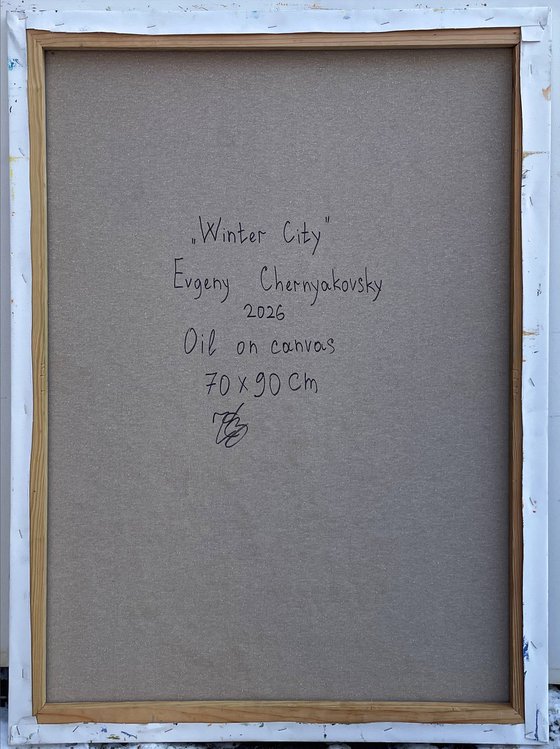 „Winter City"
Evgeny Chernyakovsky
2026
Oil on canvas
70 x 90 cm